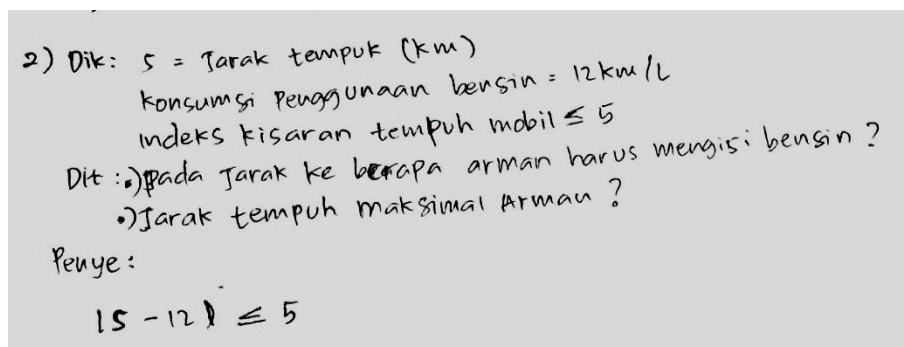 2) Dik: S = Jarak tempuk (km)
Konsumsi Penggunaan bensin = 12 km/L
indeks kisaran tempuh mobil ≤ 5
Dit : •) pada Jarak ke berapa arman harus mengisi bensin ?
•) Jarak tempuh maksimal Arman ?
Penye :
|S - 12| ≤ 5